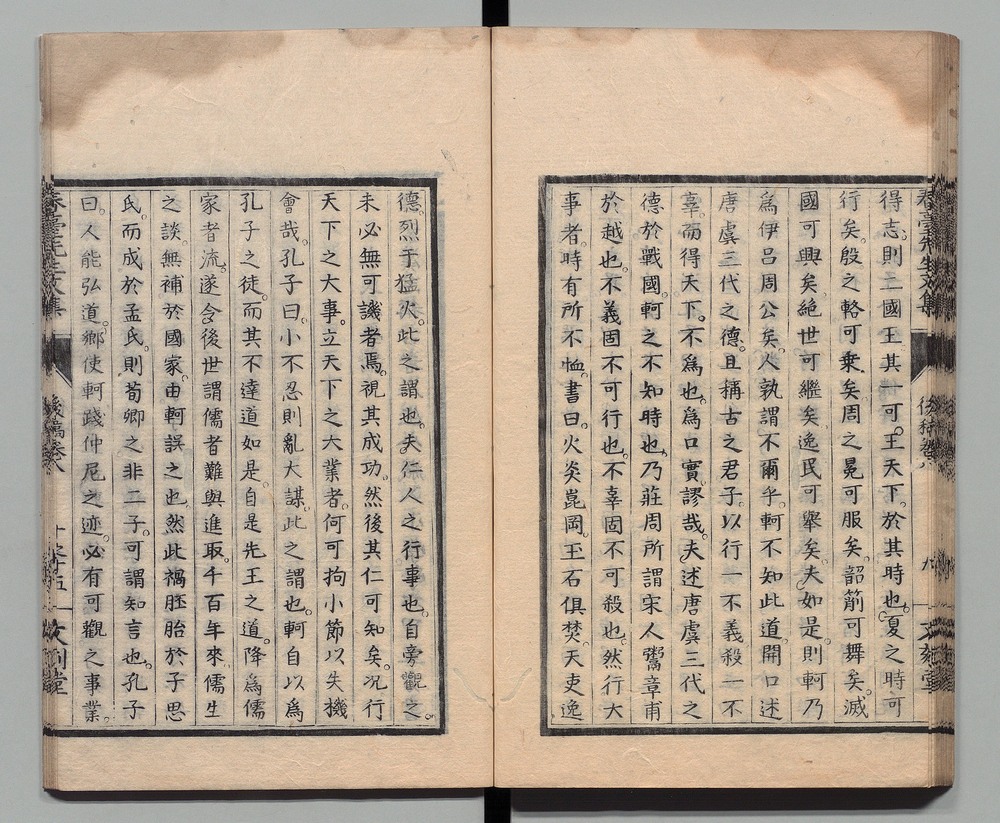 得志則二國王其一可王天下於其時也夏之時可
行矣殷之輅可乗矣周之冕可服矣韶箾可舞矣滅
國可興矣絶世可繼矣逸民可舉矣夫如是則軻乃
爲伊呂周公矣人孰謂不爾乎軻不知此道開口述
唐虞三代之德且稱古之君子以行一不義殺一不
辜而得天下不爲也爲口實謬哉夫述唐虞三代之
德於戰國軻之不知時也乃莊周所謂宋人鬻章甫
於越也不義固不可行也不辜固不可殺也然行大
事者時有所不恤書曰火炎崑岡玉石俱焚天吏逸
德烈于猛火此之謂也夫仁人之行事也自旁觀之
未必無可譏者焉視其成功然後其仁可知矣况行
天下之大事立天下之大業者何可拘小節以失機
會哉孔子曰小不忍則亂大謀此之謂也軻自以爲
孔子之徒而其不達道如是自是先王之道降爲儒
家者流遂令後世謂儒者難與進取千百年來儒生
之談無補於國家由軻誤之也然此禍胚胎於子思
氏而成於孟氏則荀卿之非二子可謂知言也孔子
曰人能弘道鄉使軻踐仲尼之迹必有可觀之事業
春臺先生文集
後稿卷八